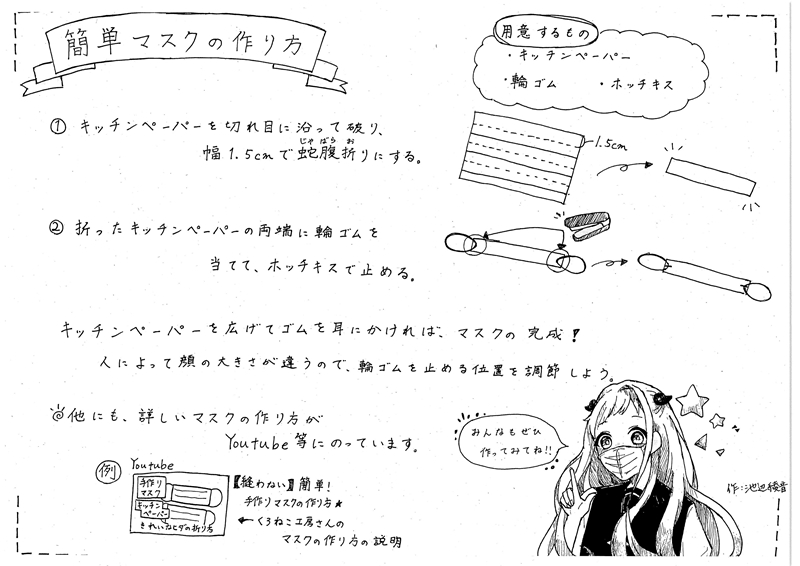 簡単マスクの作り方
用意するもの
・キッチンペーパー
・輪ゴム ・ホッチキス
① キッチンペーパーを切れ目に沿って破り、
幅1.5cmで蛇腹折りにする。
じゃばら お
1.5cm
② 折ったキッチンペーパーの両端に輪ゴムを
当てて、ホッチキスで止める。
キッチンペーパーを広げてゴムを耳にかければ、マスクの完成!
人によって顔の大きさが違うので、輪ゴムを止める位置を調節しよう。
◎他にも、詳しいマスクの作り方が
Youtube等にのっています。
みんなもぜひ
作ってみてね!!
例
Youtube
手作り
マスク
キッチン
ペーパー
きれいなヒダの折り方
【縫わない】簡単!
手作りマスクの作り方★
←くろねこ工房さんの
マスクの作り方の説明
作:池辺綾音